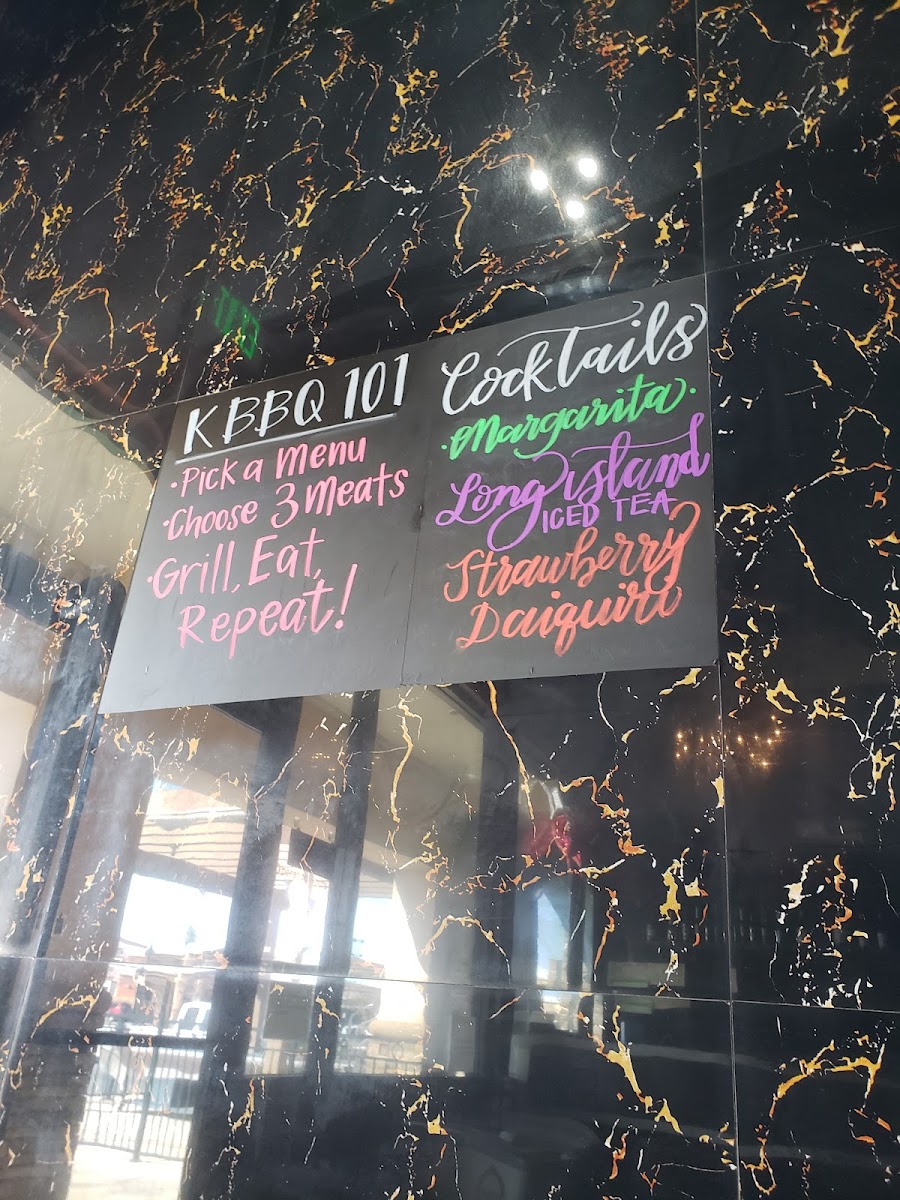 KBBQ 101
·Pick a menu
·Choose 3 Meats
·Grill, Eat,
Repeat!
Cocktails
·Margarita·
Long island
ICED TEA
Strawberry
Daiquiri
EXIT